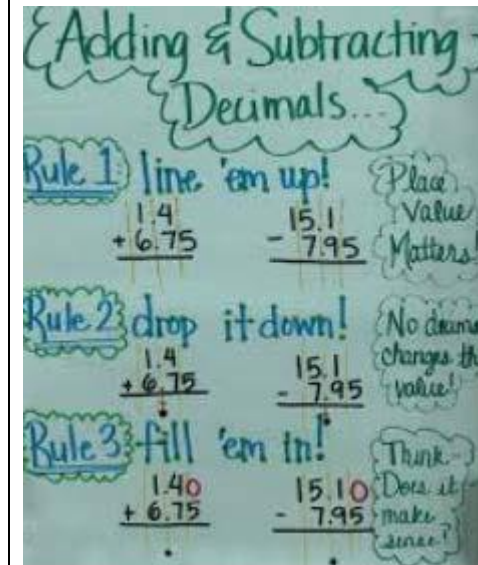 Adding & Subtracting
Decimals...
Rule 1 line 'em up!
1.4
+ 6.75
15.1
- 7.95
Place
Value
Matters!
Rule 2 drop it down!
1.4
+ 6.75
15.1
- 7.95
No
changes
value!
Rule 3 fill 'em in!
1.40
+ 6.75
.
15.10
- 7.95
.
Think -
Does it
make
sense?